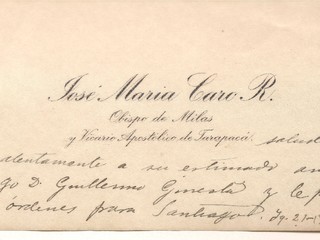 José Maria Caro R.
Obispo de Milas
y Vicario Apostólico de Tarapacá salud
atentamente a su estimado am
go D. Guillermo y le p
órdenes para Santiago.